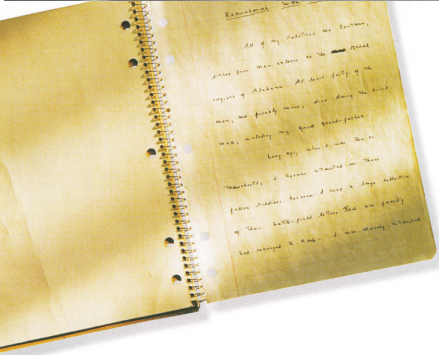 Remembering
All of my relatives are Southern,
either from
regions of Alabama. At least forty of the
men, and possibly more, died during the Civil
War, including my great grandfather.
Long ago, when I was ten or
thereabouts, I became interested in these
fallen soldiers because I read a large collection
of their battlefield letters that our family
had managed to keep. I was already interested